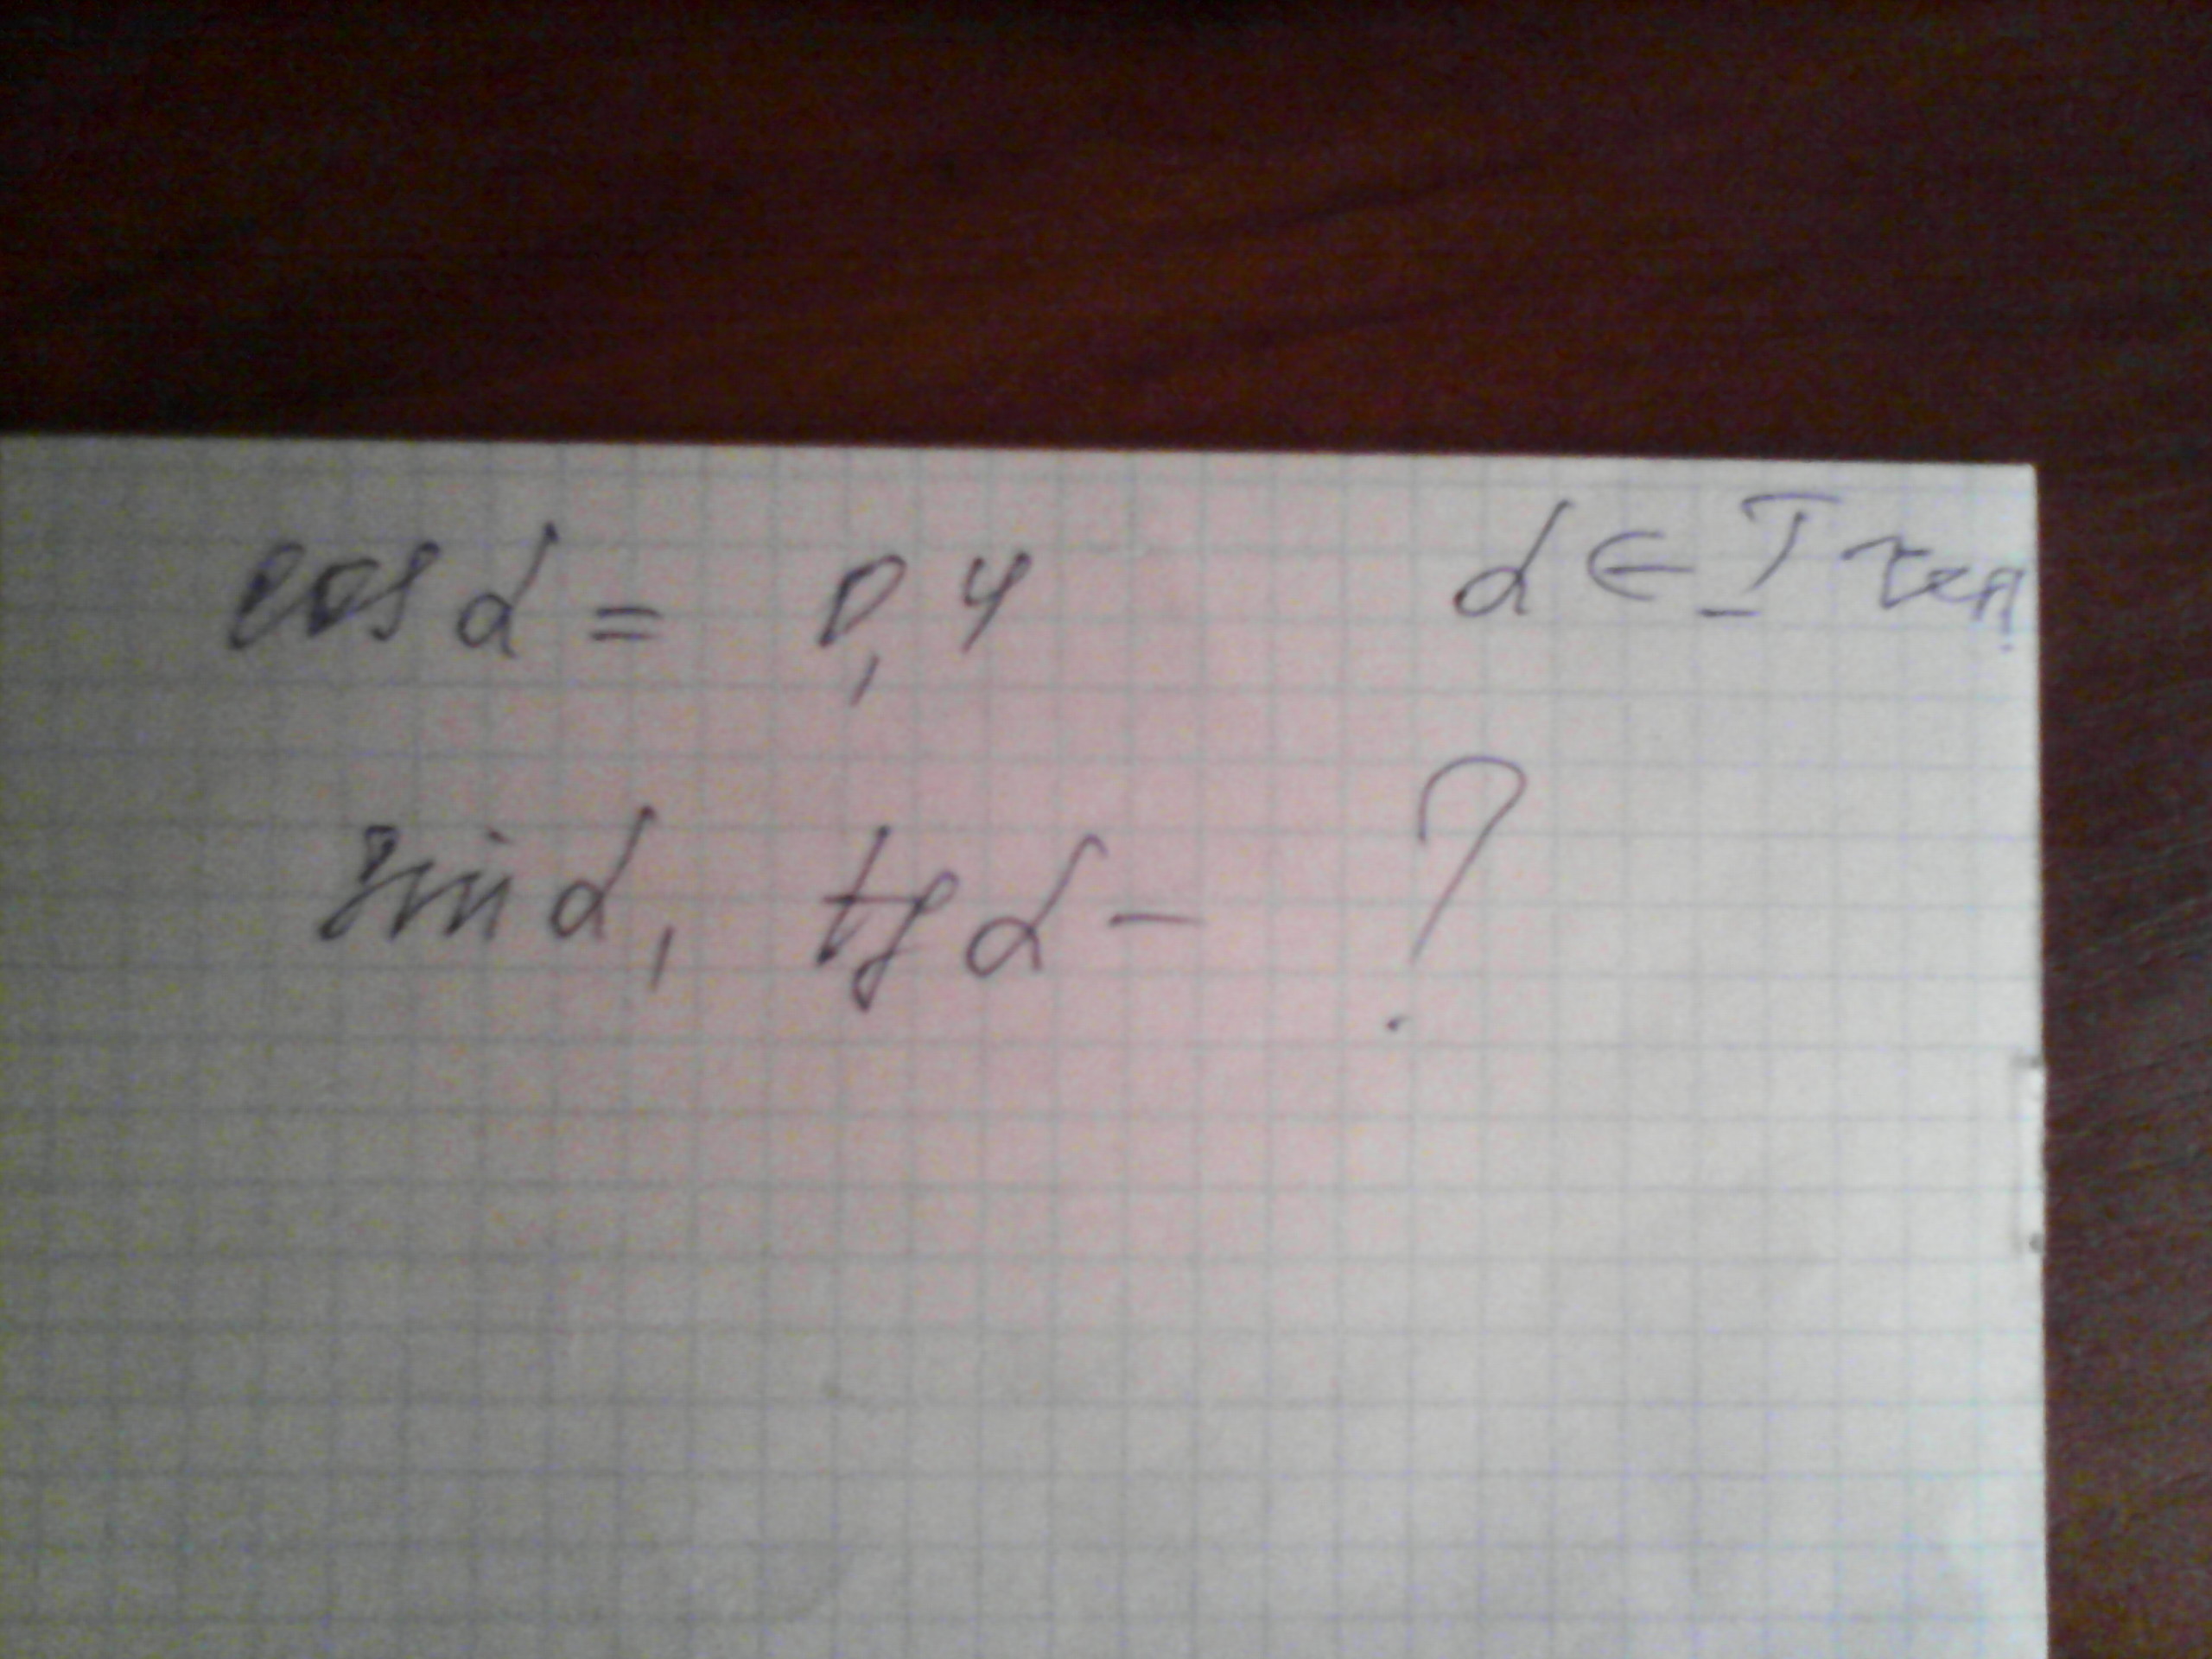 cos α = 0,4 α ∈ I чет.
sin α, tg α – ?